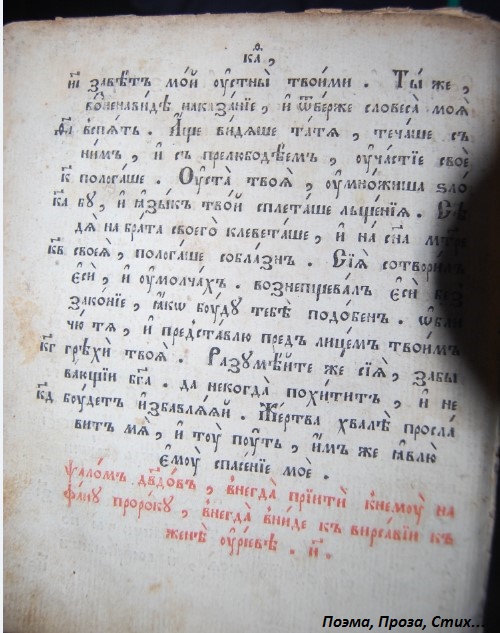 ѯ҃а,
завѣ́тъ мо́й ᲂу҆стны̀ твои́ми. Ты́ же,
во́зненавидѣ наказа́нїе, и҆ ѿве́рже словеса̀ моѧ̀
вспѧ́ть. А҆́ще ви́дѧше та́тѧ, теча́ше съ
ни́мъ, и҆ съ прелюбодѣ́емъ, ᲂу҆ча́стїе своѐ
полога́ше. Оу҆ста̀ твоѧ̀, ᲂу҆мно́жиша ѕло́
бу, и҆ ꙗ҆зы́къ тво́й сплета́ше льще́нїѧ. Сѣ
дѧ̀ на бра́та своего̀ клевета́ше, и҆ на сн҃а мт҃ре
своеѧ̀, полога́ше собла́знъ. Сїѧ̀ сотвори́лъ
є҆сѝ, и҆ ᲂу҆молча́хъ. вознепщева́лъ є҆сѝ без
зако́нїе, ꙗ҆́кѡ бꙋ́дꙋ тебѣ̀ подо́бенъ. ѡ҆бли
чю́ тѧ, и҆ предста́влю предъ лице́мъ твои́мъ
грѣхѝ твоѧ̀. Разꙋмѣ́йте же сїѧ̀, забы
ва́ющїи бг҃а. да некогда̀ похи́титъ, и҆ не
бꙋ́детъ и҆збавлѧ́ѧй. Же́ртва хвалѣ̀ просла́
витъ мѧ̀, и҆ тоу̀ поу́ть, и҆́мъ же ꙗ҆влю̀
є҆моу̀ спасе́нїе моѐ.
ѱало́мъ дв҃довъ, внегда̀ прїитѝ кнемоу̀ на
фа́нꙋ проро́кꙋ, внегда̀ вни́де къ вирса́вїи къ
женѣ̀ ᲂу҆́рїевѣ. н҃.
Поэма, Проза, Стих...